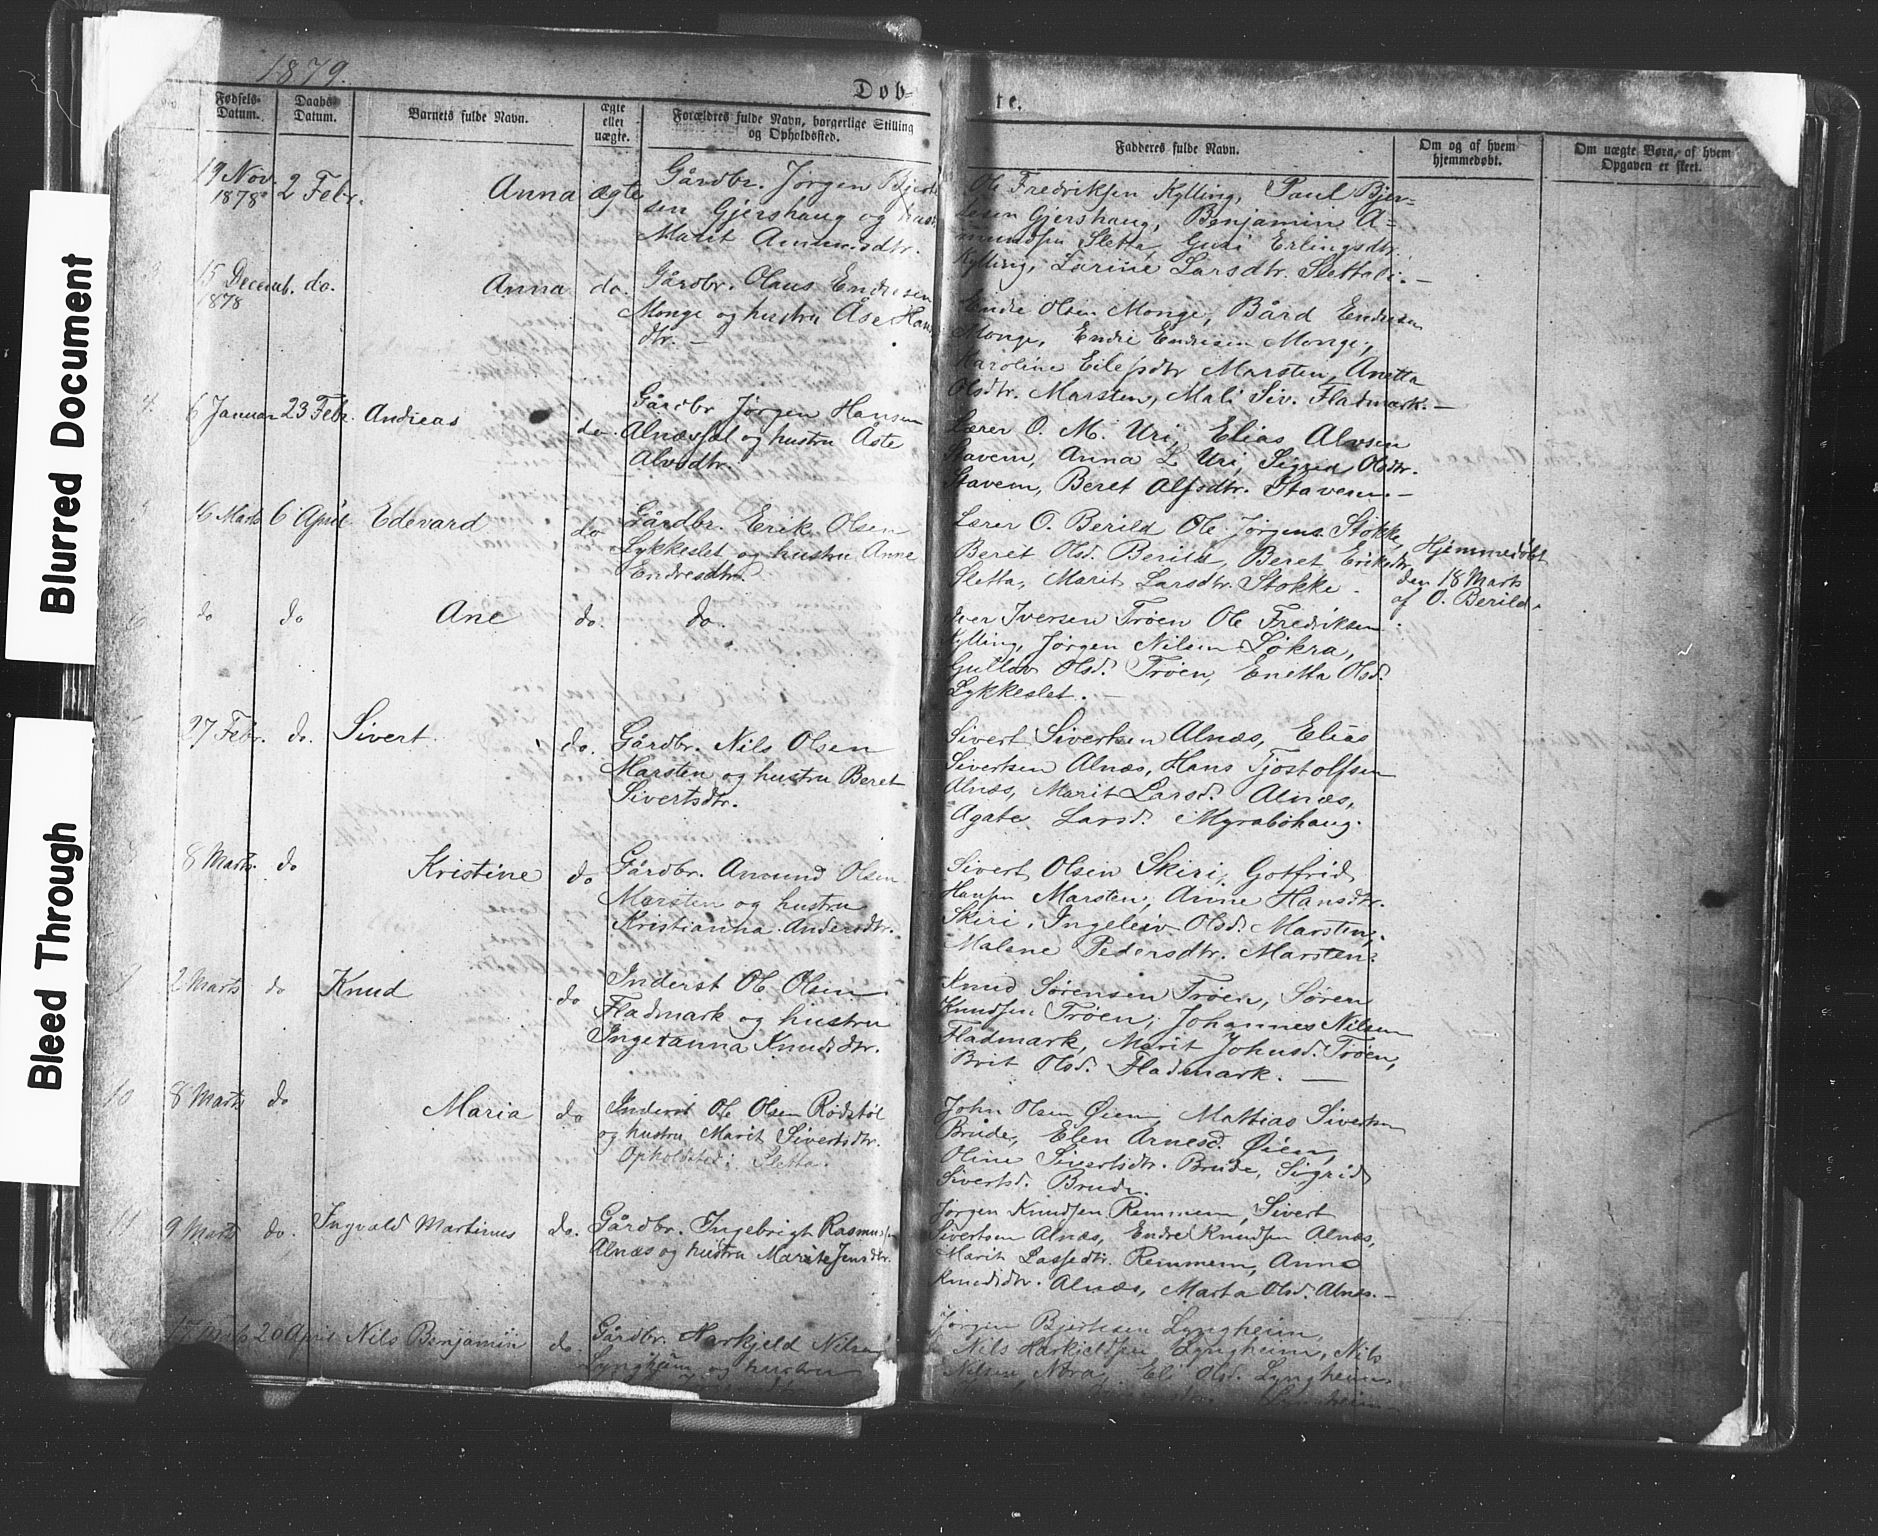 Blurred Document
Bleed Through
1879.
Dob-
te.
Fødsels-
Datum.
Daabs
Datum.
Barnets fulde Navn.
ægte
eller
uægte.
Forældres fulde Navn, borgerlige Stilling
og Opholdssted.
Fadderes fulde Navn.
Om og af hvem
hjemmedøbt.
Om uægte Børn, af hvem
Opgaven er skeet.
19 Nov.
1878
2 Febr.
Anna
ægte
Gårdbr. Jørgen
sen Gjershaug og
Marit
Ole Fredriksen Kylling, Paul Bjer-
tesen Gjershaug, Benjamin A-
mundsen Sletta, Guri Erlingsdtr.
Kylling, Larine Larsdtr.
15 Decemb.
1878
do.
Anna
do.
Gårdbr. Olaus Endresen
Monge og hustru Åse Hans
dtr. —
Endre Olsen Monge, Bård Endresen
Monge, Endre Endresen Monge,
Karoline Eilefsdtr Marsten, Anetta
Olsdtr. Marsten, Mali Siv. Fladmark. —
4.
6 Januar
23 Febr.
Andreas
do.
Gårdbr. Jørgen Hansen
og hustru Åste
Alvsdtr.
Lærer O. M. Uri, Elias Alvsen
Stavem, Anna L Uri, Sigrid Olsdtr.
Stavem, Beret Alfsdtr. Stavem. —
16 Marts
6 April
Edevard
do
Gårdbr. Erik Olsen
Lykkeslet og hustru Anne
Endresdtr.
Lærer O. Berild Ole Jørgens. Stokke,
Beret Olsd. Berild, Beret Eriksdtr.
Sletta, Marit Larsdtr. Stokke.
Hjemmedøbt
den 18 Marts
af O. Berild.
6
do
do
Ane
do.
do.
Iver Iversen Trøen Ole Fredriksen
Kylling, Jørgen Nilsen Løkra,
Olsd. Trøen, Enetta Olsd.
Lykkeslet. —
27 Febr.
do.
Sivert.
do.
Gårdbr. Nils Olsen
Marsten og hustru Beret
Sivertsdtr.
Sivert Sivertsen Alnæs, Elias
Sivertsen Alnæs, Hans Tjostolfsen
Alnæs, Marit Larsd. Alnæs,
Agate Larsd. Myrabøhaug.
8 Marts
do
Kristine
do
Gårdbr. Amund Olsen
Marsten og hustru
Kristianna Andersdtr.
Sivert Olsen Skiri, Gotfrid
Hansen Marsten, Anne Hansdtr.
Skiri, Ingeleiv Olsd. Marsten,
Malene Pedersdtr. Marsten.
2 Marts
do
Knud
do
Inderst Ole Olsen
Fladmark og hustru
Ingeranna Knudsdtr.
Knud Sørensen Trøen, Søren
Knudsen Trøen, Johannes Nilsen
Fladmark, Marit Johnsd. Trøen,
Brit Olsd. Fladmark. —
10
8 Marts
do
Maria
do
Inderst Ole Olsen Rødstøl
og hustru Marit Sivertsdtr.
Opholdsted: Sletta.
John Olsen Øien, Mathias Sivertsen
Brude, Elen Arnesd Øien,
Oline Sivertsdtr. Brude, Sigrid
Sivertsd. Brude.
11
9 Marts
do.
Ingvald Martinus
do.
Gårdbr. Ingebrigt Rasmussen
Alnæs og hustru Marite Jensdtr.
Jørgen Knudsen Remmem, Sivert
Sivertsen Alnæs, Endre Knudsen Alnæs,
Marit Lassedtr. Remmem, Anne
Knudsdtr. Alnæs, Marta Olsd. Alnæs. —
17 Marts
20 April
Nils Benjamin
do.
Gårdbr. Harkjeld Nilsen
Lyngheim og hustru
Jørgen Bjertesen Lyngheim,
Nils Harkjeldsen Lyngheim, Nils
Nilsen Nora, Eli Olsd. Lyngheim
Lyngheim